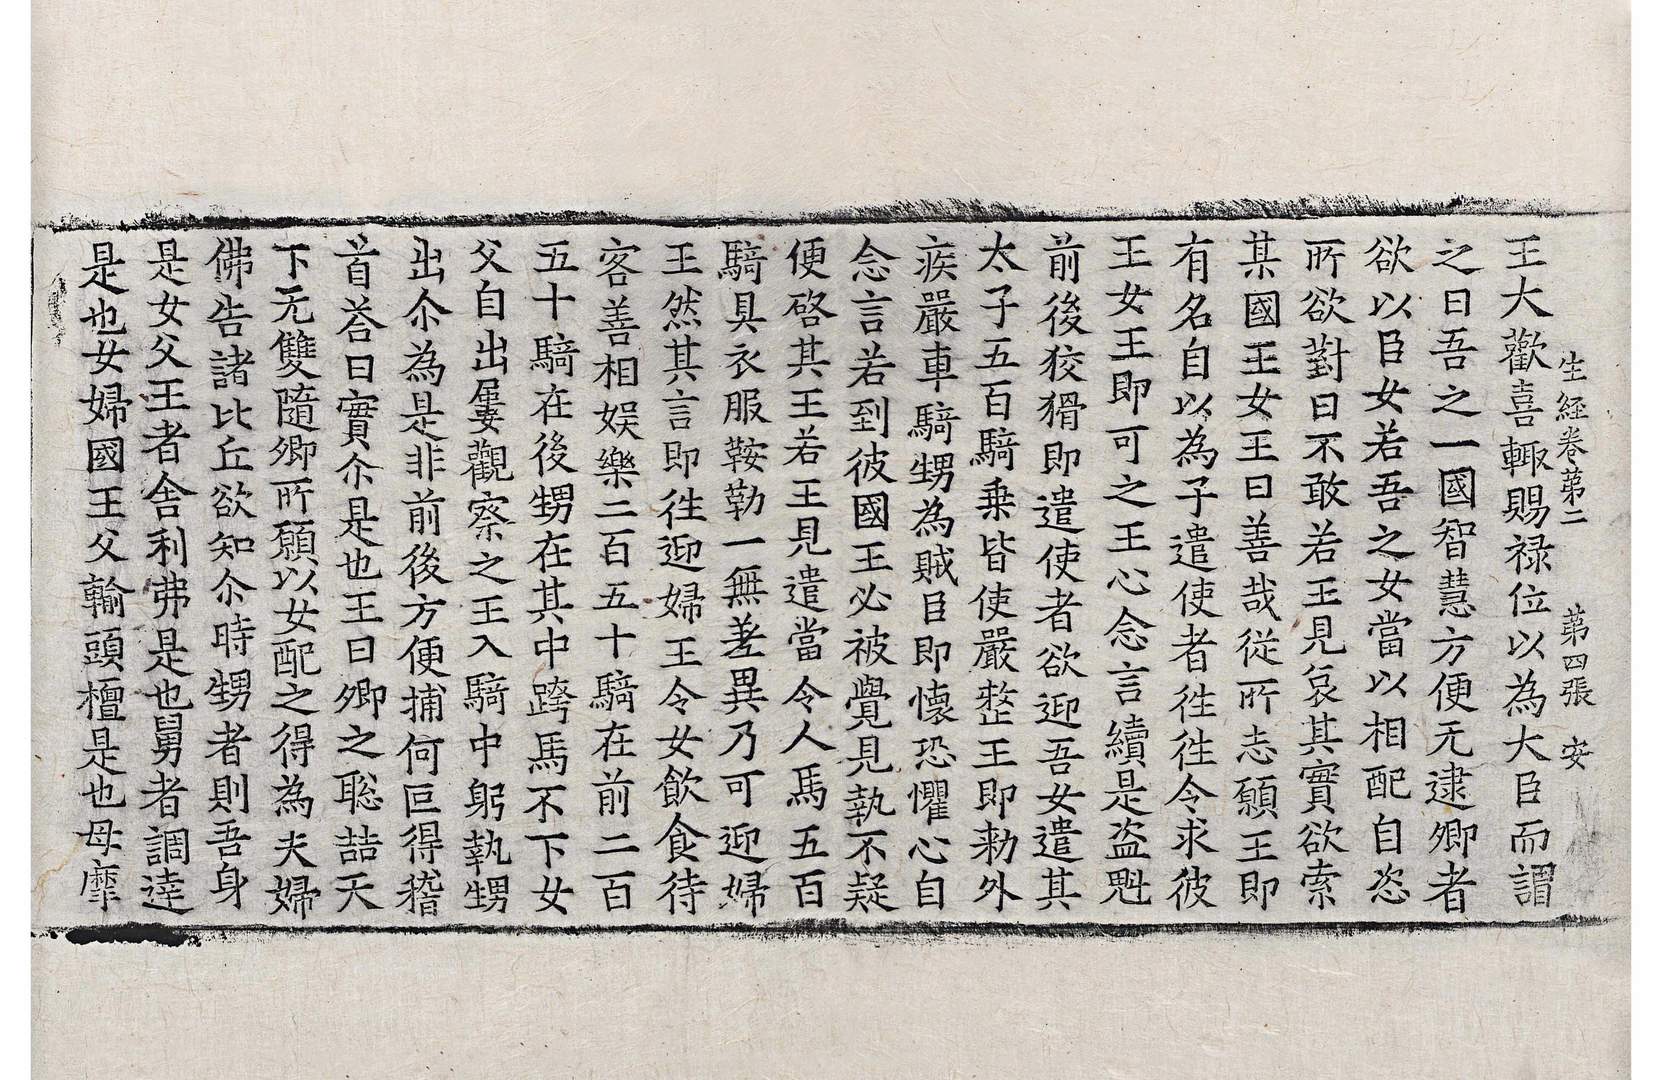 生經卷第二 第四張 安
王大歡喜輙賜禄位以為大臣而謂
之曰吾之一國智慧方便无逮卿者
欲以臣女若吾之女當以相配自恣
所欲對曰不敢若王見哀其實欲索
某國王女王曰善哉從所志願王即
有名自以為子遣使者徃徃令求彼
王女王即可之王心念言續是盗魁
前後狡猾即遣使者欲迎吾女遣其
太子五百騎乗皆使嚴整王即勑外
疾嚴車騎甥為賊臣即懷恐懼心自
念言若到彼國王必被覺見執不疑
便啓其王若王見遣當令人馬五百
騎具衣服鞍勒一無差異乃可迎婦
王然其言即徃迎婦王令女飲食待
客善相娯樂二百五十騎在前二百
五十騎在後甥在其中跨馬不下女
父自出屢觀察之王入騎中躬執甥
出尒為是非前後方便捕何叵得稽
首荅曰實尒是也王曰卿之聡喆天
下无雙隨卿所願以女配之得為夫婦
佛告諸比丘欲知尒時甥者則吾身
是女父王者舎利弗是也舅者調達
是也女婦國王父輸頭檀是也母摩